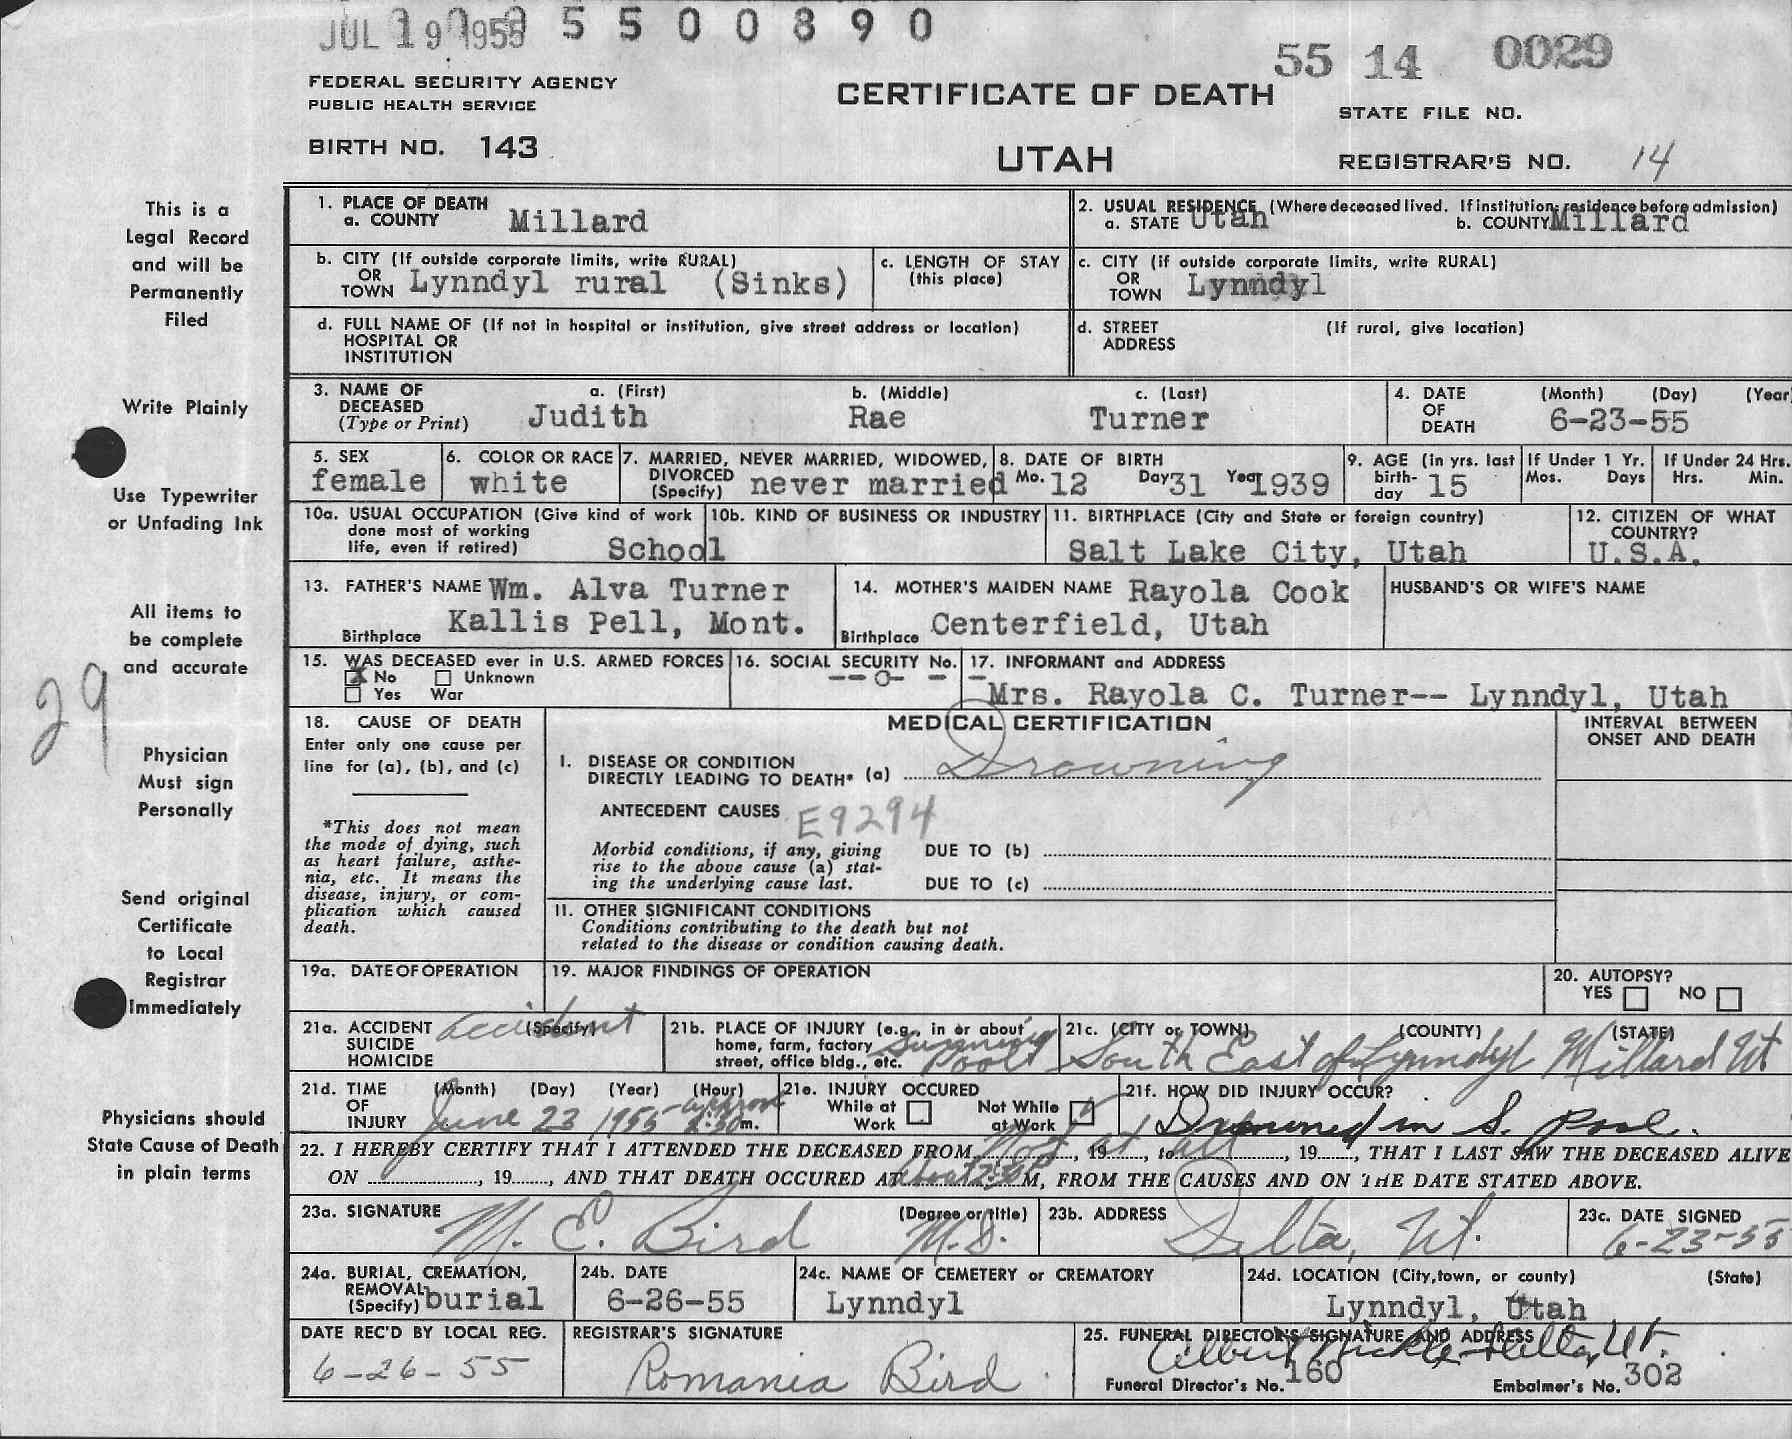 JUL 19 1955 5 5 0 0 8 9 0
55 14 0029
FEDERAL SECURITY AGENCY
PUBLIC HEALTH SERVICE
CERTIFICATE OF DEATH
STATE FILE NO.
BIRTH NO. 143
UTAH
REGISTRAR'S NO. 14
This is a
Legal Record
and will be
Permanently
Filed
Write Plainly
Use Typewriter
or Unfading Ink
All items to
be complete
and accurate
29
Physician
Must sign
Personally
Send original
Certificate
to Local
Registrar
Immediately
Physicians should
State Cause of Death
in plain terms
1. PLACE OF DEATH
a. COUNTY Millard
2. USUAL RESIDENCE (Where deceased lived. If institution; residence before admission)
a. STATE Utah b. COUNTY Millard
b. CITY (If outside corporate limits, write RURAL)
OR
TOWN Lynndyl rural (Sinks)
c. LENGTH OF STAY
(this place)
c. CITY (if outside corporate limits, write RURAL)
OR
TOWN Lynndyl
d. FULL NAME OF (If not in hospital or institution, give street address or location)
HOSPITAL OR
INSTITUTION
d. STREET (If rural, give location)
ADDRESS
3. NAME OF a. (First) b. (Middle) c. (Last)
DECEASED
(Type or Print) Judith Rae Turner
4. DATE (Month) (Day) (Year
OF
DEATH 6-23-55
5. SEX
female
6. COLOR OR RACE
white
7. MARRIED, NEVER MARRIED, WIDOWED,
DIVORCED
(Specify) never married
8. DATE OF BIRTH
Mo. 12 Day 31 Year 1939
9. AGE (in yrs. last
birth-
day 15
If Under 1 Yr.
Mos. Days
If Under 24 Hrs.
Hrs. Min.
10a. USUAL OCCUPATION (Give kind of work
done most of working
life, even if retired) School
10b. KIND OF BUSINESS OR INDUSTRY
11. BIRTHPLACE (City and State or foreign country)
Salt Lake City, Utah
12. CITIZEN OF WHAT
COUNTRY?
U.S.A.
13. FATHER'S NAME Wm. Alva Turner
Birthplace Kallis Pell, Mont.
14. MOTHER'S MAIDEN NAME Rayola Cook
Birthplace Centerfield, Utah
HUSBAND'S OR WIFE'S NAME
15. WAS DECEASED ever in U.S. ARMED FORCES
No Unknown
Yes War
16. SOCIAL SECURITY No.
-- -O- - -
17. INFORMANT and ADDRESS
Mrs. Rayola C. Turner-- Lynndyl, Utah
18. CAUSE OF DEATH
Enter only one cause per
line for (a), (b), and (c)
*This does not mean
the mode of dying, such
as heart failure, asthe-
nia, etc. It means the
disease, injury, or com-
plication which caused
death.
MEDICAL CERTIFICATION
INTERVAL BETWEEN
ONSET AND DEATH
I. DISEASE OR CONDITION
DIRECTLY LEADING TO DEATH* (a) Drowning
ANTECEDENT CAUSES E9294
Morbid conditions, if any, giving
rise to the above cause (a) stat-
ing the underlying cause last.
DUE TO (b)
DUE TO (c)
11. OTHER SIGNIFICANT CONDITIONS
Conditions contributing to the death but not
related to the disease or condition causing death.
19a. DATE OF OPERATION
19. MAJOR FINDINGS OF OPERATION
20. AUTOPSY?
YES NO
21a. ACCIDENT (Specify) accident
SUICIDE
HOMICIDE
21b. PLACE OF INJURY (e.g., in or about
home, farm, factory
street, office bldg., etc. Swimming
Pool
21c. (CITY or TOWN) (COUNTY) (STATE)
South East of Lynndyl Millard Ut
21d. TIME (Month) (Day) (Year) (Hour)
OF
INJURY June 23 1955 approx 2:30 m.
21e. INJURY OCCURED
While at Work
Not While at Work
21f. HOW DID INJURY OCCUR?
Drowned in S. Pool.
22. I HEREBY CERTIFY THAT I ATTENDED THE DECEASED FROM Not at, 19, to all, 19, THAT I LAST SAW THE DECEASED ALIVE
ON , 19, AND THAT DEATH OCCURED AT about 2:30 P M, FROM THE CAUSES AND ON THE DATE STATED ABOVE.
23a. SIGNATURE (Degree or title)
M. E. Bird M.D.
23b. ADDRESS
Delta, Ut.
23c. DATE SIGNED
6-23-55
24a. BURIAL, CREMATION,
REMOVAL
(Specify) burial
24b. DATE
6-26-55
24c. NAME OF CEMETERY or CREMATORY
Lynndyl
24d. LOCATION (City, town, or county) (State)
Lynndyl, Utah
DATE REC'D BY LOCAL REG.
6-26-55
REGISTRAR'S SIGNATURE
Romania Bird
25. FUNERAL DIRECTOR'S SIGNATURE AND ADDRESS
Delta, Ut.
Funeral Director's No. 160 Embalmer's No. 302